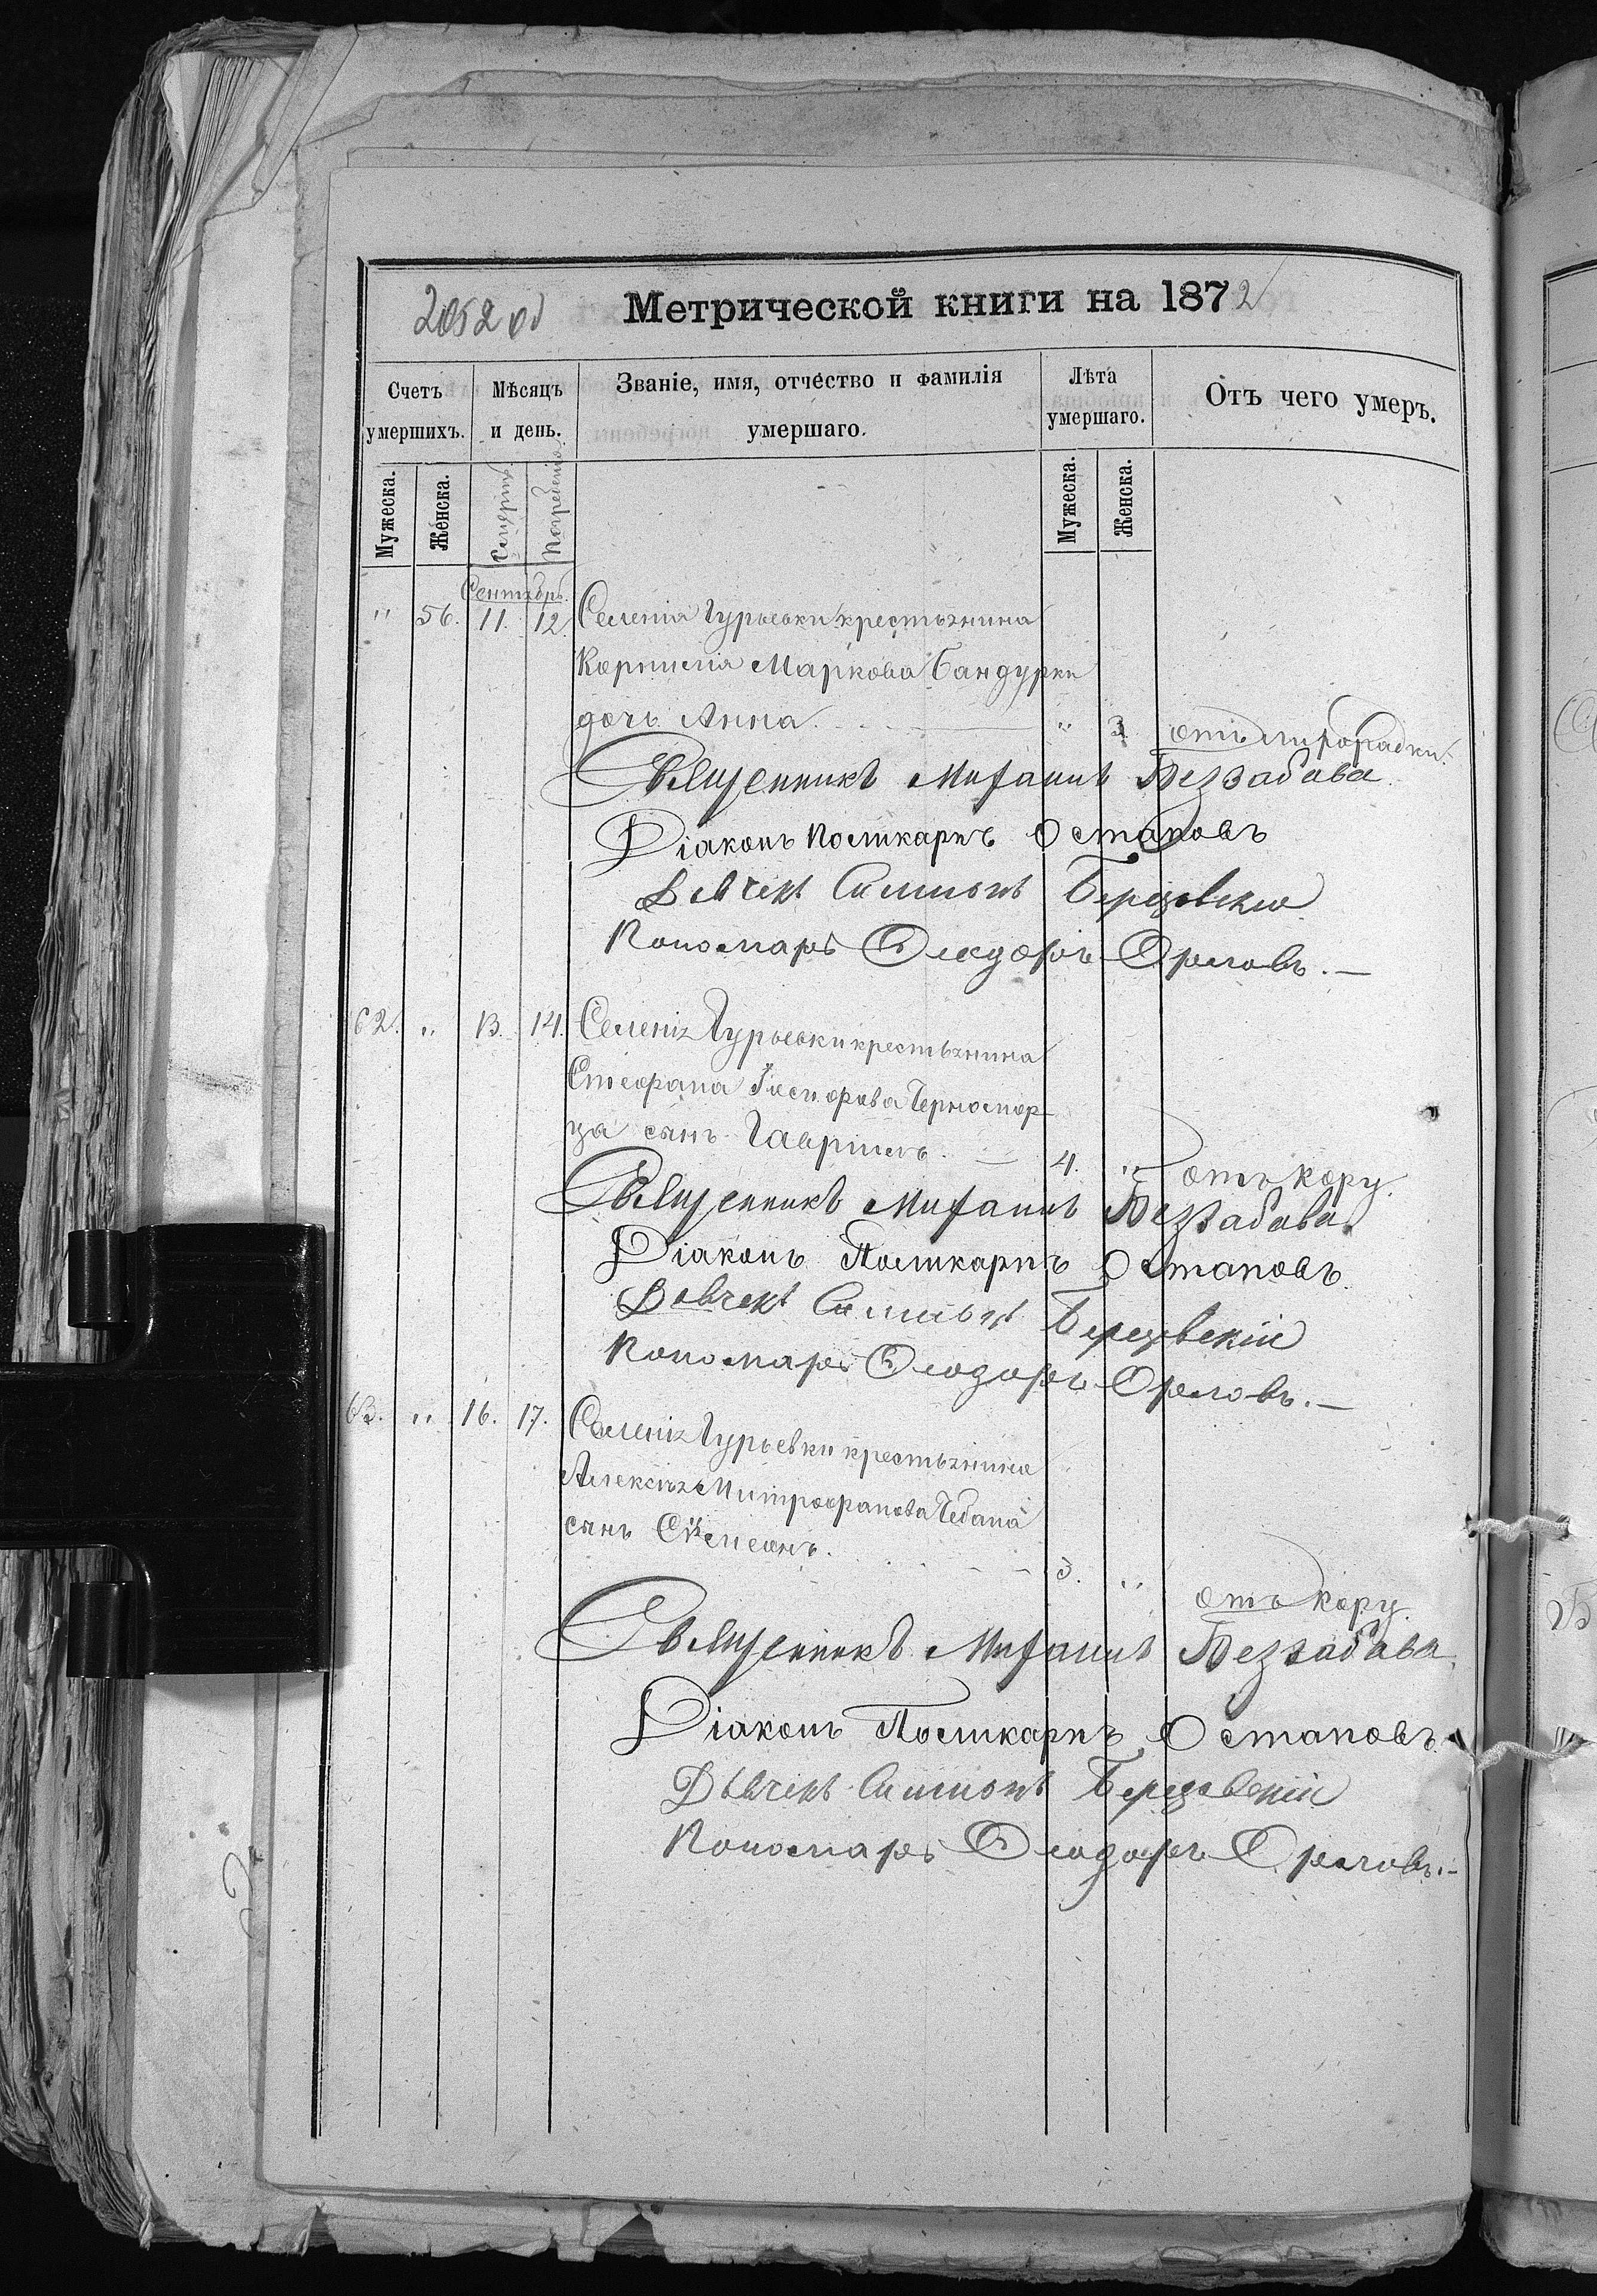 2052 об
Метрической книги на 1872
Счетъ умершихъ.
Мѣсяцъ и день.
Званіе, имя, отчество и фамилія умершаго.
Лѣта умершаго.
Отъ чего умеръ.
Мужеска. Женска. Смерти. Погребенія. Мужеска. Женска.
Сентябрь.
" 56. 11. 12. Селенія Гурьевки крестьянина
Корнилія Маркова Бандурки
дочь Анна. " 3. отъ лихорадки.
Священникъ Михаилъ Беззабава.
Діаконъ Поликарпъ Остаповъ
Дьячекъ Симеонъ Березовскій
Пономарь Ѳеодоръ Орловъ.—
62. " 13. 14. Селенія Гурьевки крестьянина
Стефана Черномор-
ца сынъ Гавріилъ. 4. " отъ кору.
Священникъ Михаилъ Беззабава.
Діаконъ Поликарпъ Остаповъ.
Дьячекъ Симеонъ Березовскій
Пономарь Ѳеодоръ Орловъ.—
63. " 16. 17. Селенія Гурьевки крестьянина
Алексѣя Митрофанова Чебана
сынъ Сѵмеонъ. 3. " отъ кору.
Священникъ Михаилъ Беззабава.
Діаконъ Поликарпъ Остаповъ.
Дьячекъ Симеонъ Березовскій
Пономарь Ѳеодоръ Орловъ.—